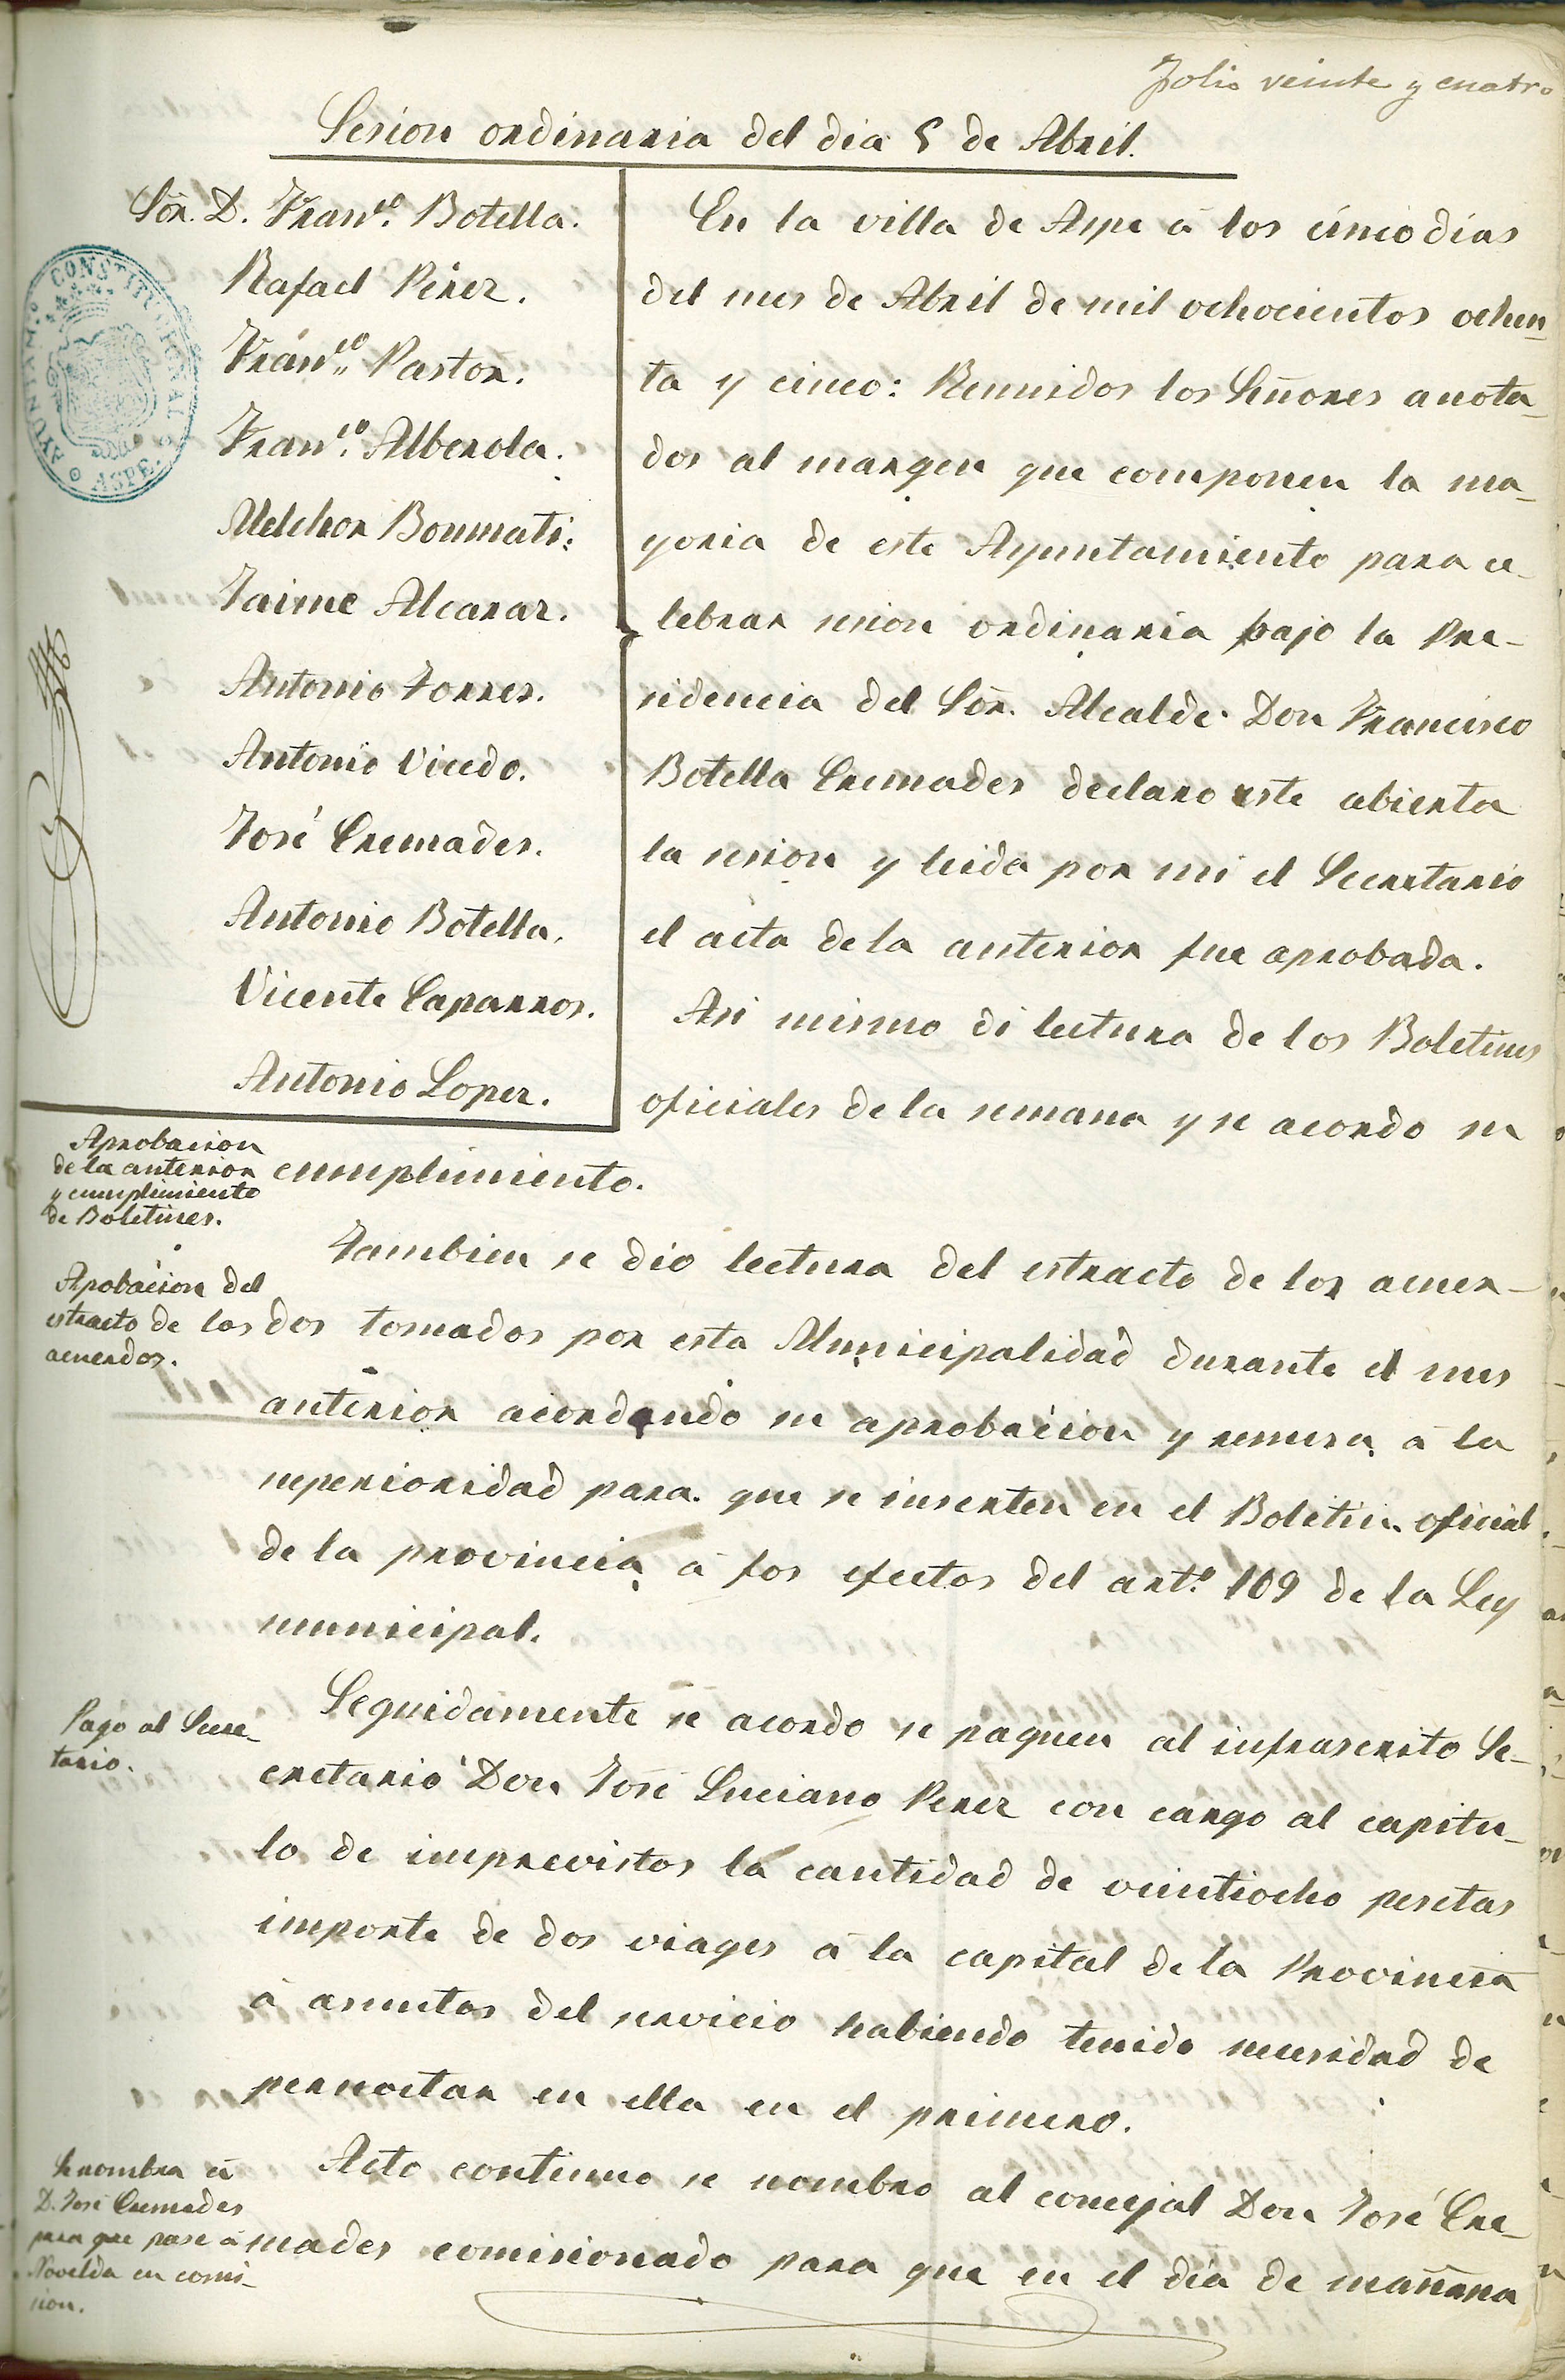 Folio veinte y cuatro
Sesion ordinaria del dia 5 de Abril.
Sōr. D. Franco. Botella.
Rafael Perez.
Franco. Pastor.
Franco. Alberola.
Melchor Boumati.
Jaime Alcaraz.
Antonio Torres.
Antonio Vicedo.
José Cremades.
Antonio Botella.
Vicente Caparros.
Antonio Lopez.
AYUNTAM.º CONSTITUCIONAL
ASPE
En la villa de Aspe á los cinco dias
del mes de Abril de mil ochocientos ochen_
ta y cinco: Reunidos los Señores anota_
dos al margen que componen la ma_
yoria de este Ayuntamiento para ce_
lebrar sesion ordinaria bajo la Pre_
sidencia del Sōr. Alcalde Don Francisco
Botella Cremades declaro este abierta
la sesion y leida por mi el Secretario
el acta de la anterior fue aprobada.
Asi mismo di lectura de los Boletines
oficiales de la semana y se acordo su
Aprobacion
de la anterior
y cumplimiento
de Boletines.
cumplimiento.
Tambien se dio lectura del estracto de los acuer_
Apobacion del
estracto de los
acuerdos.
dos tomados por esta Municipalidad durante el mes
anterior acordando su aprobacion y remesa á la
superioridad para que se inserten en el Boletin oficial
de la provincia á los efectos del art.º 109 de la Ley
municipal.
Pago al Secre_
tario.
Seguidamente se acordo se paguen al infrascrito Se_
cretario Don José Luciano Perez con cargo al capitu_
lo de imprevistos la cantidad de veintiocho pesetas
importe de dos viages á la capital de la Provincia
á asuntos del servicio habiendo tenido necesidad de
pernoctar en ella en el primero.
Se nombra á
D. José Cremades
para que pase á
Novelda en comi_
sion.
Acto continuo se nombro al concejal Don José Cre_
mades comisionado para que en el dia de mañana